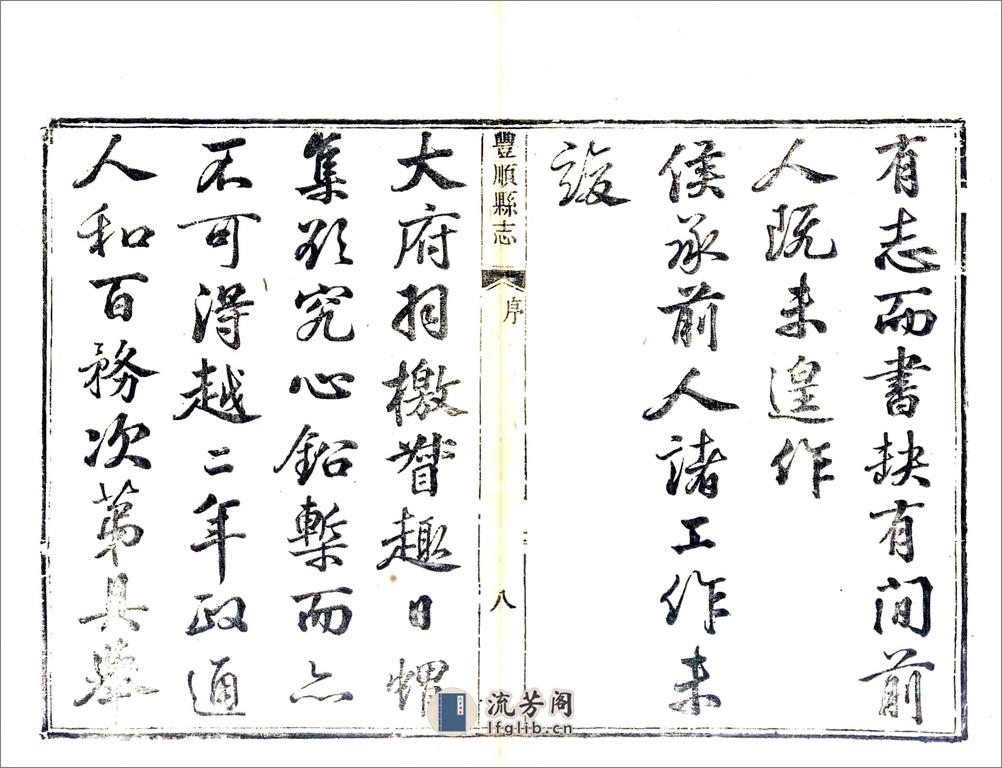 有志而書缺有间前
人既未遑作
侯承前人諸工作未
竣
豐順縣志
序
八
大府羽檄督趣日蝟
集欲究心鉛槧而亦
不可得越二年政通
人和百務次第具舉
流芳阁
lfglib.cn